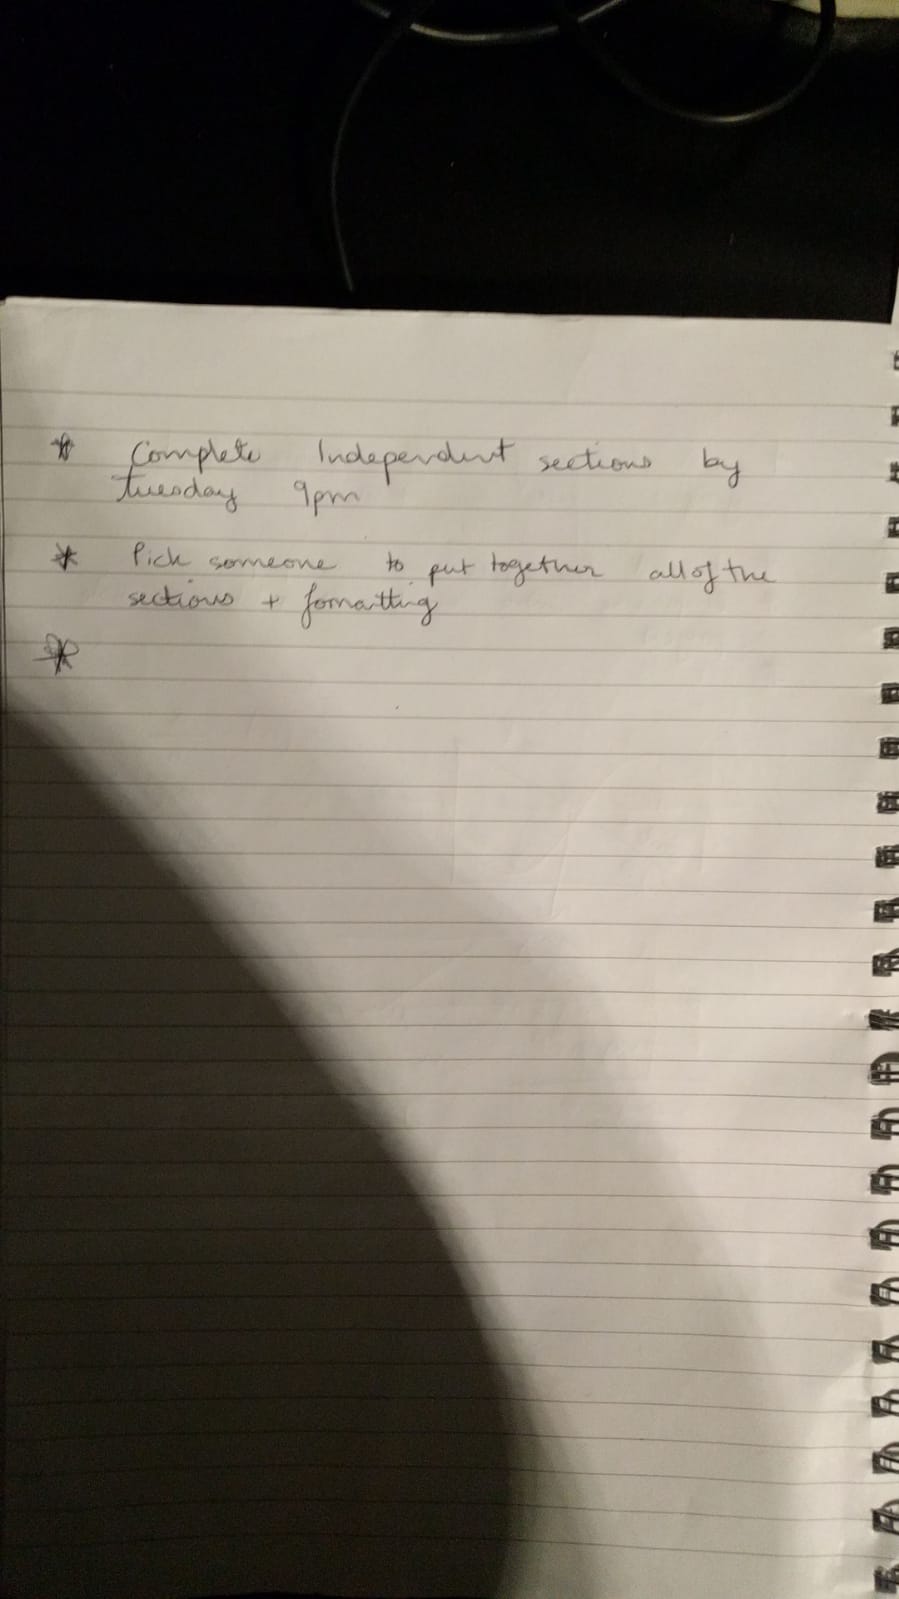 * Complete Independent sections by
Tuesday 9pm
* Pick someone to put together all of the
sections + formatting
*